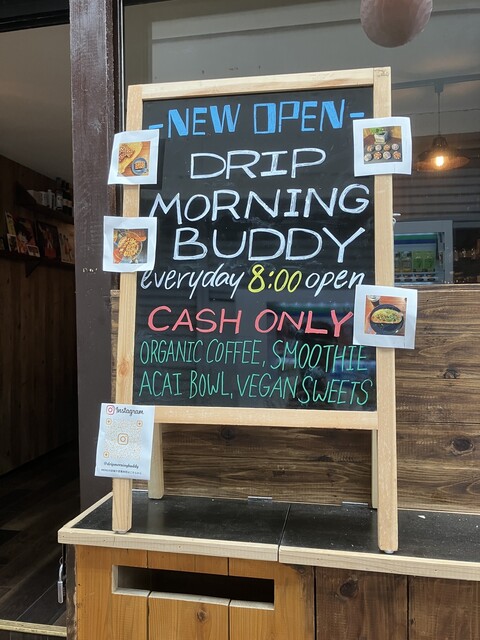 -NEW OPEN-
DRIP
MORNING
BUDDY
everyday 8:00 open
CASH ONLY
ORGANIC COFFEE, SMOOTHIE
ACAI BOWL, VEGAN SWEETS
Instagram